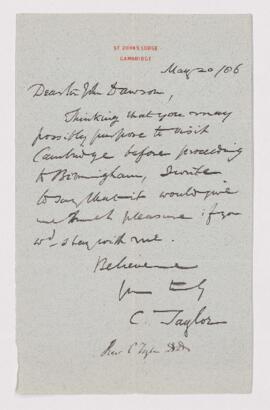 ST JOHN'S LODGE
CAMBRIDGE
May 20/06
Dear Sir John Dawson,
Thinking that you may
possibly purpose to visit
Cambridge before proceeding
to Birmingham, I write
to say that it would give
me much pleasure if you
wd. stay with me.
Believe me
C. Taylor
Rev C Taylor